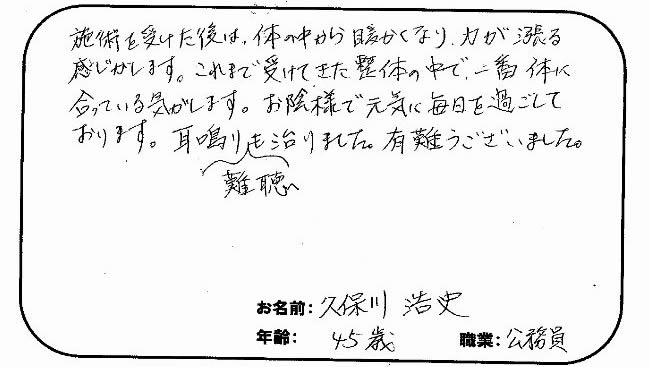 施術を受けた後は、体の中から暖かくなり、力が漲る
感じがします。これまで受けてきた整体の中で、一番体に
合っている気がします。お陰様で元気に毎日を過ごして
おります。耳鳴りも治りました。有難うございました。
難聴
お名前:久保川 浩史
年齢: 45歳 職業:公務員